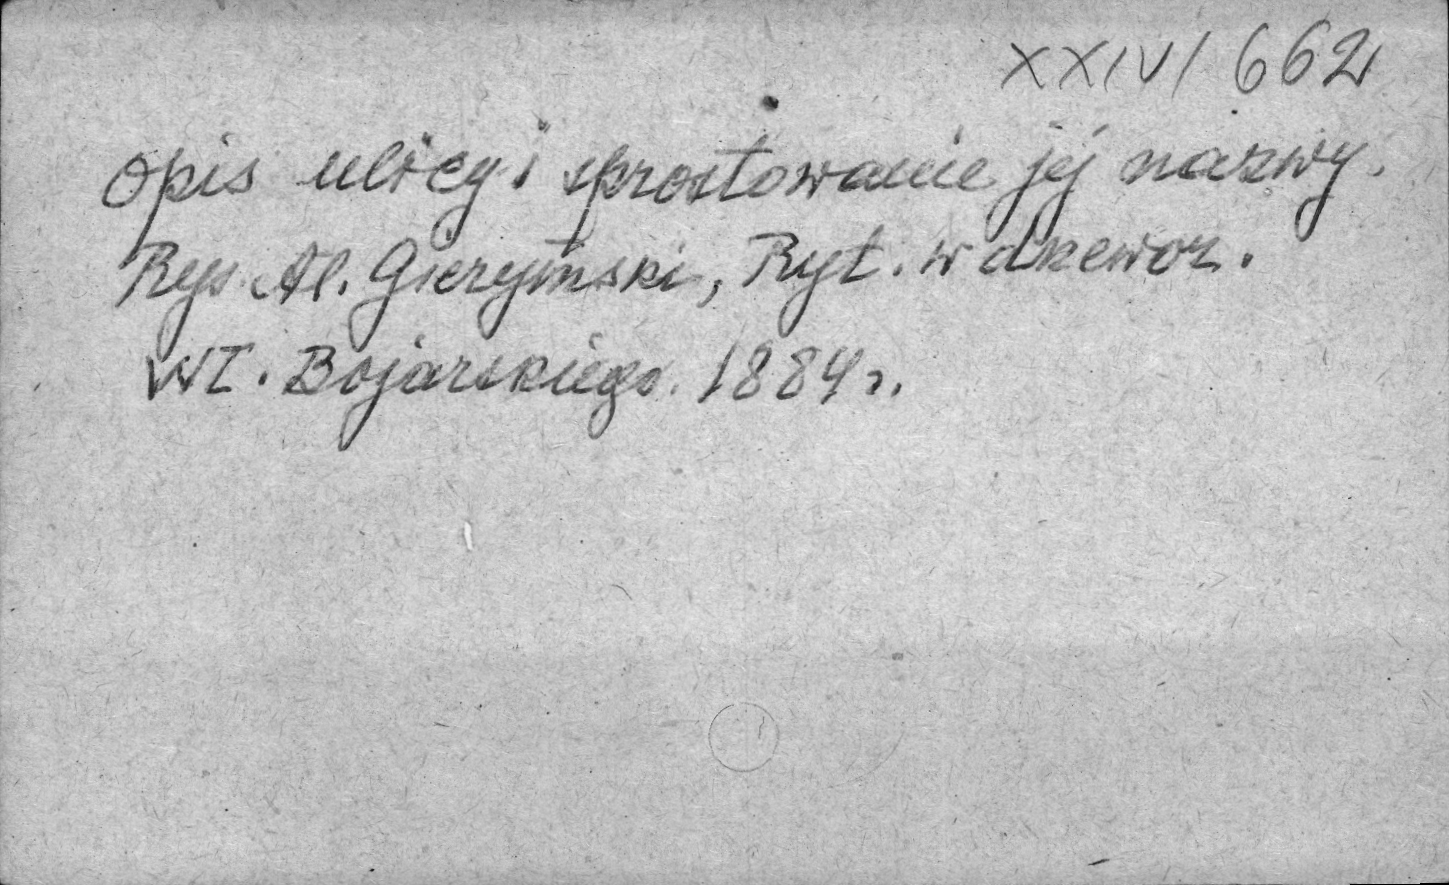 XXIV/662
Opis ulicy i sprostowanie jej nazwy.
Rys. Al. Gierymski, Ryt. w drzewor.
Wł. Bojarskiego. 1884 r.